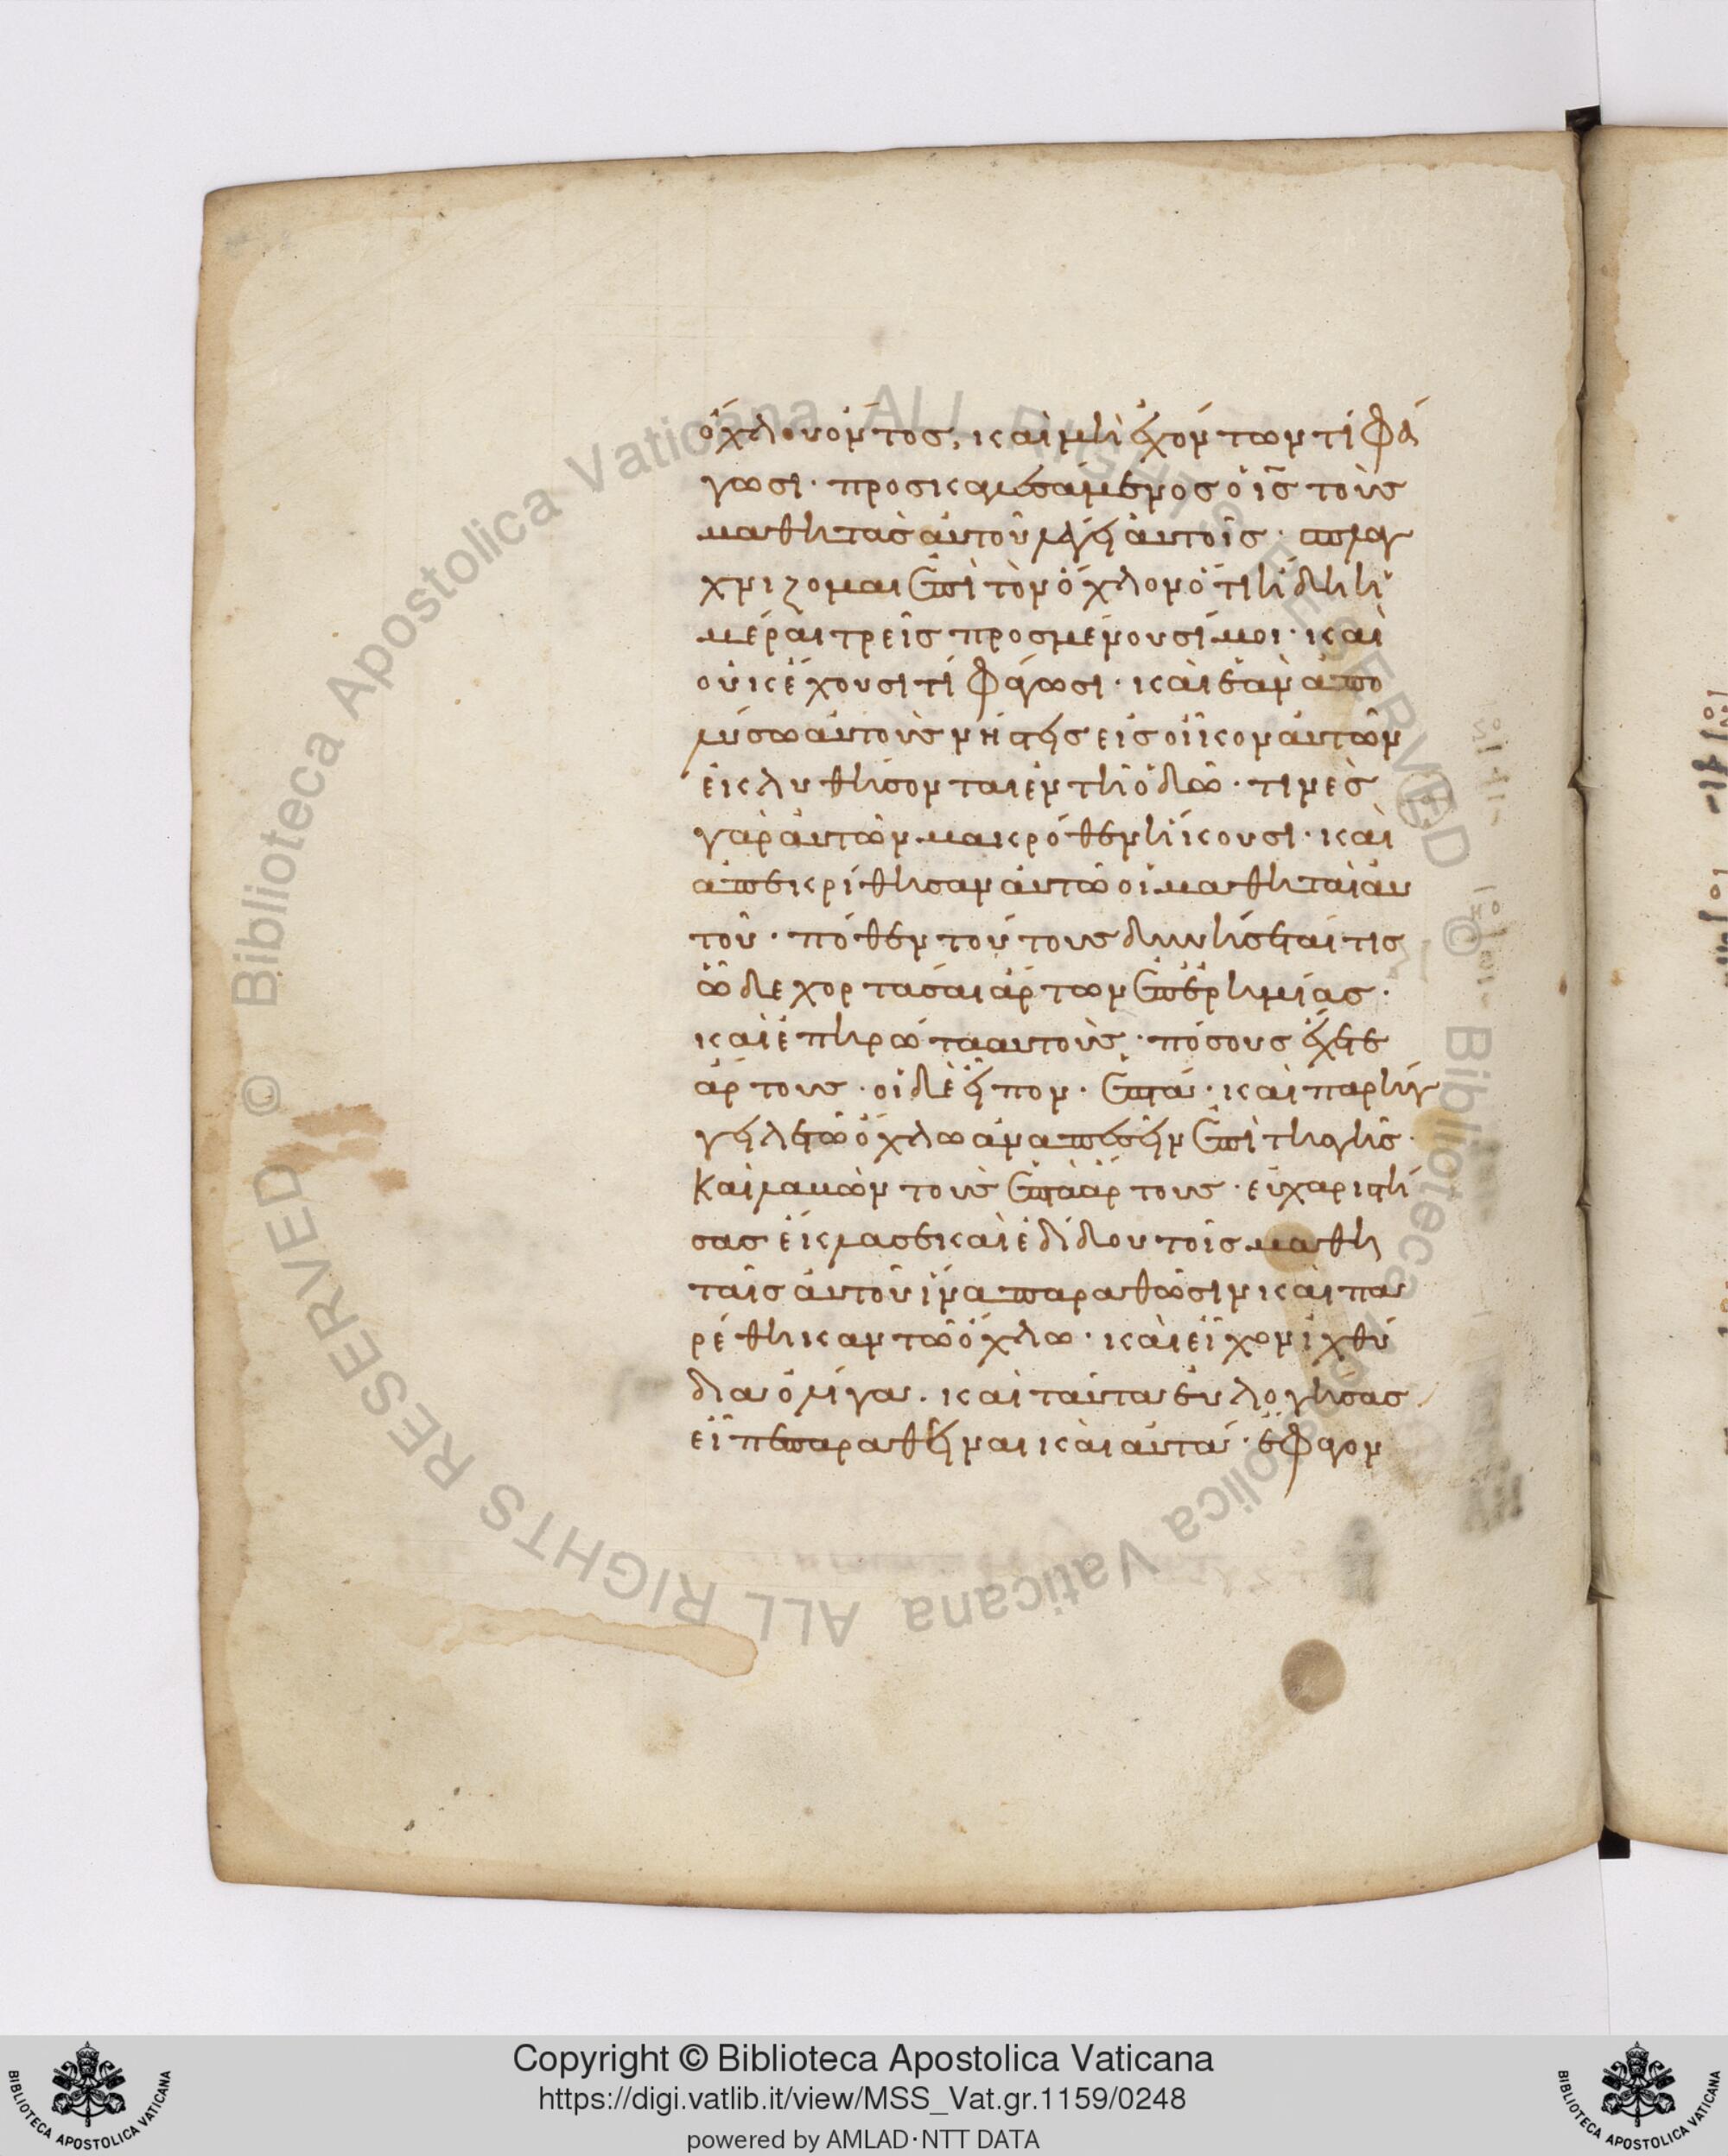 ὄχλου ὄντος, καὶ μὴ ἐχόντων τί φά
γωσι· προσκαλεσάμενος ὁ ις τοὺς
μαθητὰς αὐτοῦ λέγει αὐτοῖς· σπλαγ
χνίζομαι ἐπὶ τὸν ὄχλον ὅτι ἤδη ἡ
μέραι τρεῖς προσμένουσί μοι· καὶ
οὐκ ἔχουσι τί φάγωσι· καὶ ἐὰν ἀπο
λύσω αὐτοὺς νήστεις εἰς οἶκον αὐτῶν
ἐκλυθήσονται ἐν τῆ ὁδῶ· τινὲς
γὰρ αὐτῶν μακρόθεν ἥκουσι· καὶ
ἀπεκρίθησαν αὐτῶ οἱ μαθηταὶ αὐ
τοῦ· πόθεν τούτους δυνήσεταί τις
ὧδε χορτάσαι ἄρτων ἐπ' ἐρημίας·
καὶ ἐπηρώτα αὐτοὺς· πόσους ἔχετε
ἄρτους· οἱ δὲ εἶπον· ἑπτά· καὶ παρήγ
γειλε τῶ ὄχλω ἀναπεσεῖν ἐπὶ τῆς γῆς·
Καὶ λαβὼν τοὺς ἑπτὰ ἄρτους· εὐχαριστή
σας ἔκλασε καὶ ἐδίδου τοῖς μαθη
ταῖς αὐτοῦ ἵνα παραθῶσιν καὶ πα
ρέθηκαν τῶ ὄχλω· καὶ εἶχον ἰχθύ
δια ὀλίγα· καὶ ταῦτα εὐλογήσας
εἶπε παραθεῖναι καὶ αὐτά· ἔφαγον
Copyright © Biblioteca Apostolica Vaticana
https://digi.vatlib.it/view/MSS_Vat.gr.1159/0248
powered by AMLAD·NTT DATA
BIBLIOTECA APOSTOLICA VATICANA
BIBLIOTECA APOSTOLICA VATICANA
© Biblioteca Apostolica Vaticana ALL RIGHTS RESERVED © Biblioteca Apostolica Vaticana ALL RIGHTS RESERVED